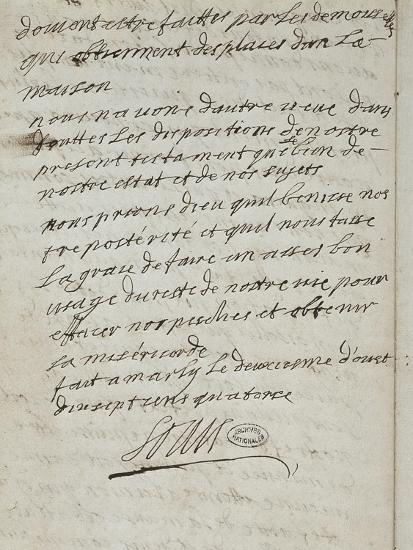 doivent estre faittes par les demoiselles
qui obtiennent des places dans la
maison
nous n avons d autre veue dans
touttes les dispositions de nostre
present testament que le bien de
nostre estat et de nos sujets
nous prions dieu quil benisse nos
tre postérité et quil nous fasse
la grace de faire un asses bon
usage du reste de nostre vie pour
effacer nos peschés et obtenir
sa miséricorde
fait a marly le deuxiesme d'oust
dix sept cens quatorze
Louis
ARCHIVES
NATIONALES